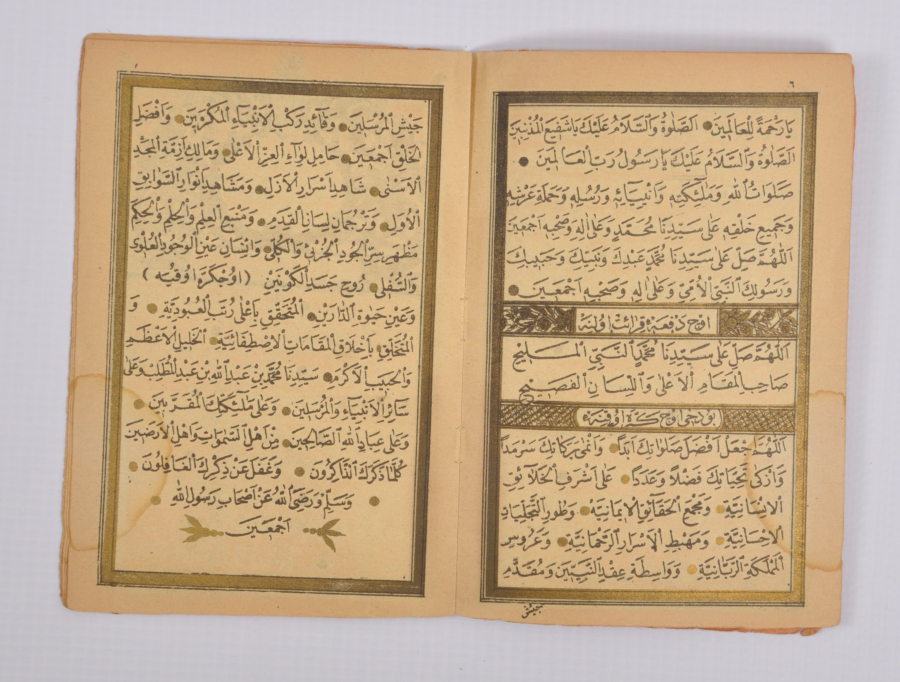 ٦
يَا رَحْمَةً لِلْعَالَمِينَ الصَّلٰوةُ وَالسَّلَامُ عَلَيْكَ يَا شَفِيعَ الْمُذْنِبِينَ
الصَّلٰوةُ وَالسَّلَامُ عَلَيْكَ يَا رَسُولَ رَبِّ الْعَالَمِينَ
صَلَوَاتُ اللهِ وَمَلٰئِكَتِهِ وَاَنْبِيَائِهِ وَرُسُلِهِ وَحَمَلَةِ عَرْشِهِ
وَجَمِيعِ خَلْقِهِ عَلٰى سَيِّدِنَا مُحَمَّدٍ وَعَلٰى اٰلِهِ وَصَحْبِهِ اَجْمَعِينَ
اَللّٰهُمَّ صَلِّ عَلٰى سَيِّدِنَا مُحَمَّدٍ عَبْدِكَ وَنَبِيِّكَ وَحَبِيبِكَ
وَرَسُولِكَ النَّبِيِّ الْاُمِّيِّ وَعَلٰى اٰلِهِ وَصَحْبِهِ اَجْمَعِينَ
اوچ دفعه قرائت اولنه
اَللّٰهُمَّ صَلِّ عَلٰى سَيِّدِنَا مُحَمَّدٍ النَّبِيِّ الْمَلِيحِ
صَاحِبِ الْمَقَامِ الْاَعْلٰى وَاللِّسَانِ الْفَصِيحِ
بو دخی اوچ کره اوقنه
اَللّٰهُمَّ اجْعَلْ اَفْضَلَ صَلَوَاتِكَ اَبَدًا وَاَنْمٰى بَرَكَاتِكَ سَرْمَدًا
وَاَزْكٰى تَحِيَّاتِكَ فَضْلًا وَعَدَدًا عَلٰى اَشْرَفِ الْخَلَائِقِ
الْاِنْسَانِيَّةِ وَمَجْمَعِ الْحَقَائِقِ الْاِيمَانِيَّةِ وَطُورِ التَّجَلِّيَاتِ
الْاِحْسَانِيَّةِ وَمَهْبِطِ الْاَسْرَارِ الرَّحْمَانِيَّةِ وَعَرُوسِ
الْمَمْلَكَةِ الرَّبَّانِيَّةِ وَوَاسِطَةِ عِقْدِ النَّبِيِّينَ وَمُقَدَّمِ
جيش
جَيْشِ الْمُرْسَلِينَ وَقَائِدِ رَكْبِ الْاَنْبِيَاءِ الْمُكَرَّمِينَ وَاَفْضَلِ
الْخَلْقِ اَجْمَعِينَ حَامِلِ لِوَاءِ الْعِزِّ الْاَعْلٰى وَمَالِكِ اَزِمَّةِ الْمَجْدِ
الْاَسْنٰى شَاهِدِ اَسْرَارِ الْاَزَلِ وَمُشَاهِدِ اَنْوَارِ السَّوَابِقِ
الْاُوَلِ وَتَرْجُمَانِ لِسَانِ الْقِدَمِ وَمَنْبَعِ الْعِلْمِ وَالْحِلْمِ وَالْحِكَمِ
مَظْهَرِ سِرِّ الْجُودِ الْجُزْئِيِّ وَالْكُلِّيِّ وَاِنْسَانِ عَيْنِ الْوُجُودِ الْعُلْوِيِّ
وَالسُّفْلِيِّ رُوحِ جَسَدِ الْكَوْنَيْنِ ( اوچ كره اوقنه )
وَعَيْنِ حَيٰوةِ الدَّارَيْنِ الْمُتَحَقِّقِ بِاَعْلٰى رُتَبِ الْعُبُودِيَّةِ وَ
الْمُتَخَلِّقِ بِاَخْلَاقِ الْمَقَامَاتِ الْاِصْطِفَائِيَّةِ الْخَلِيلِ الْاَعْظَمِ
وَالْحَبِيبِ الْاَكْرَمِ سَيِّدِنَا مُحَمَّدِ بْنِ عَبْدِ اللهِ بْنِ عَبْدِ الْمُطَّلِبِ وَعَلٰى
سَائِرِ الْاَنْبِيَاءِ وَالْمُرْسَلِينَ وَعَلٰى مَلٰئِكَتِكَ الْمُقَرَّبِينَ
وَعَلٰى عِبَادِ اللهِ الصَّالِحِينَ مِنْ اَهْلِ السَّمٰوَاتِ وَاَهْلِ الْاَرَضِينَ
كُلَّمَا ذَكَرَكَ الذَّاكِرُونَ وَغَفَلَ عَنْ ذِكْرِكَ الْغَافِلُونَ
وَسَلِّمْ وَرَضِيَ اللهُ عَنْ اَصْحَابِ رَسُولِ اللهِ
اَجْمَعِينَ